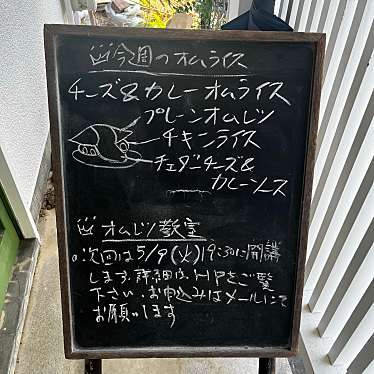 今週のオムライス
チーズ&カレーオムライス
プレーンオムレツ
チキンライス
チェダーチーズ&
カレーソース
オムレツ教室
次回は5/9(火)19:30に開講
します。詳細は、HPをご覧
下さい。お申込みはメールにて
お願いします